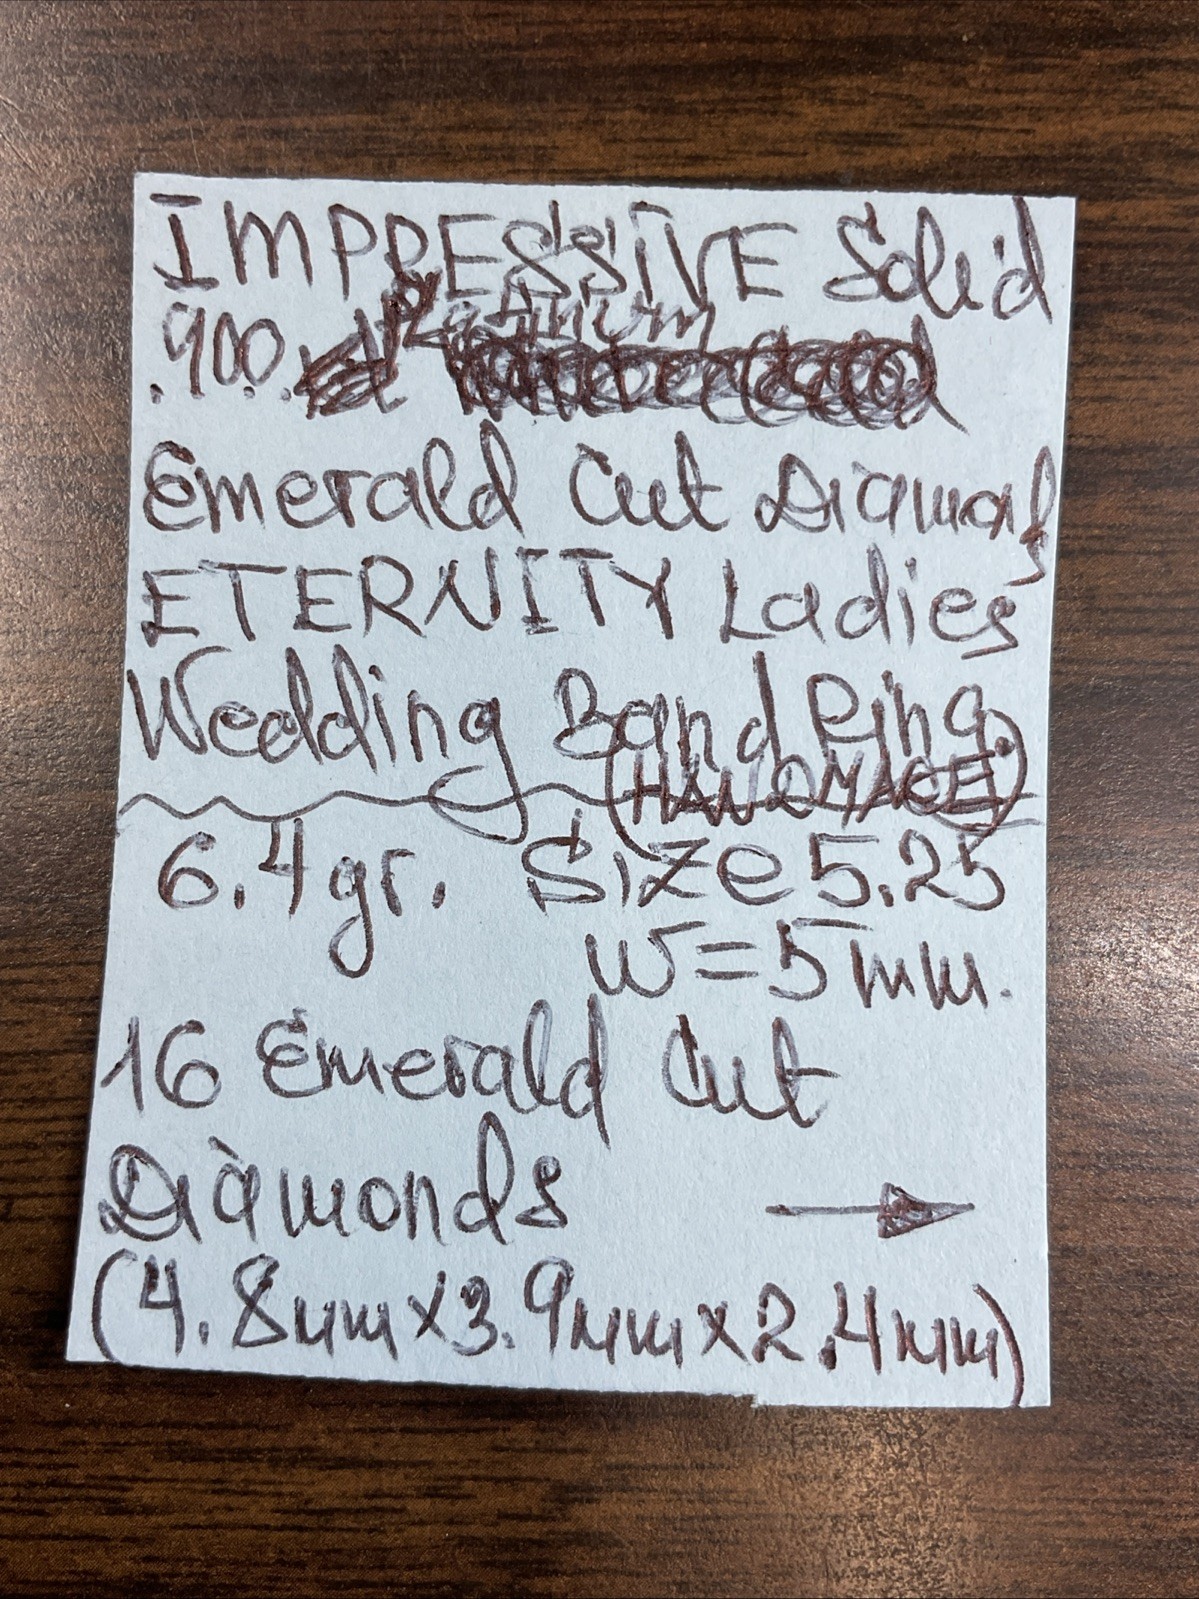 IMPRESSIVE Solid
.900. Platinum
Emerald Cut Diamond
ETERNITY Ladies
Wedding Band Ring.
(HANDMADE)
6.4gr. Size 5.25
W=5mm.
16 Emerald Cut
Diamonds
(4.8mm x 3.9mm x 2.4mm)